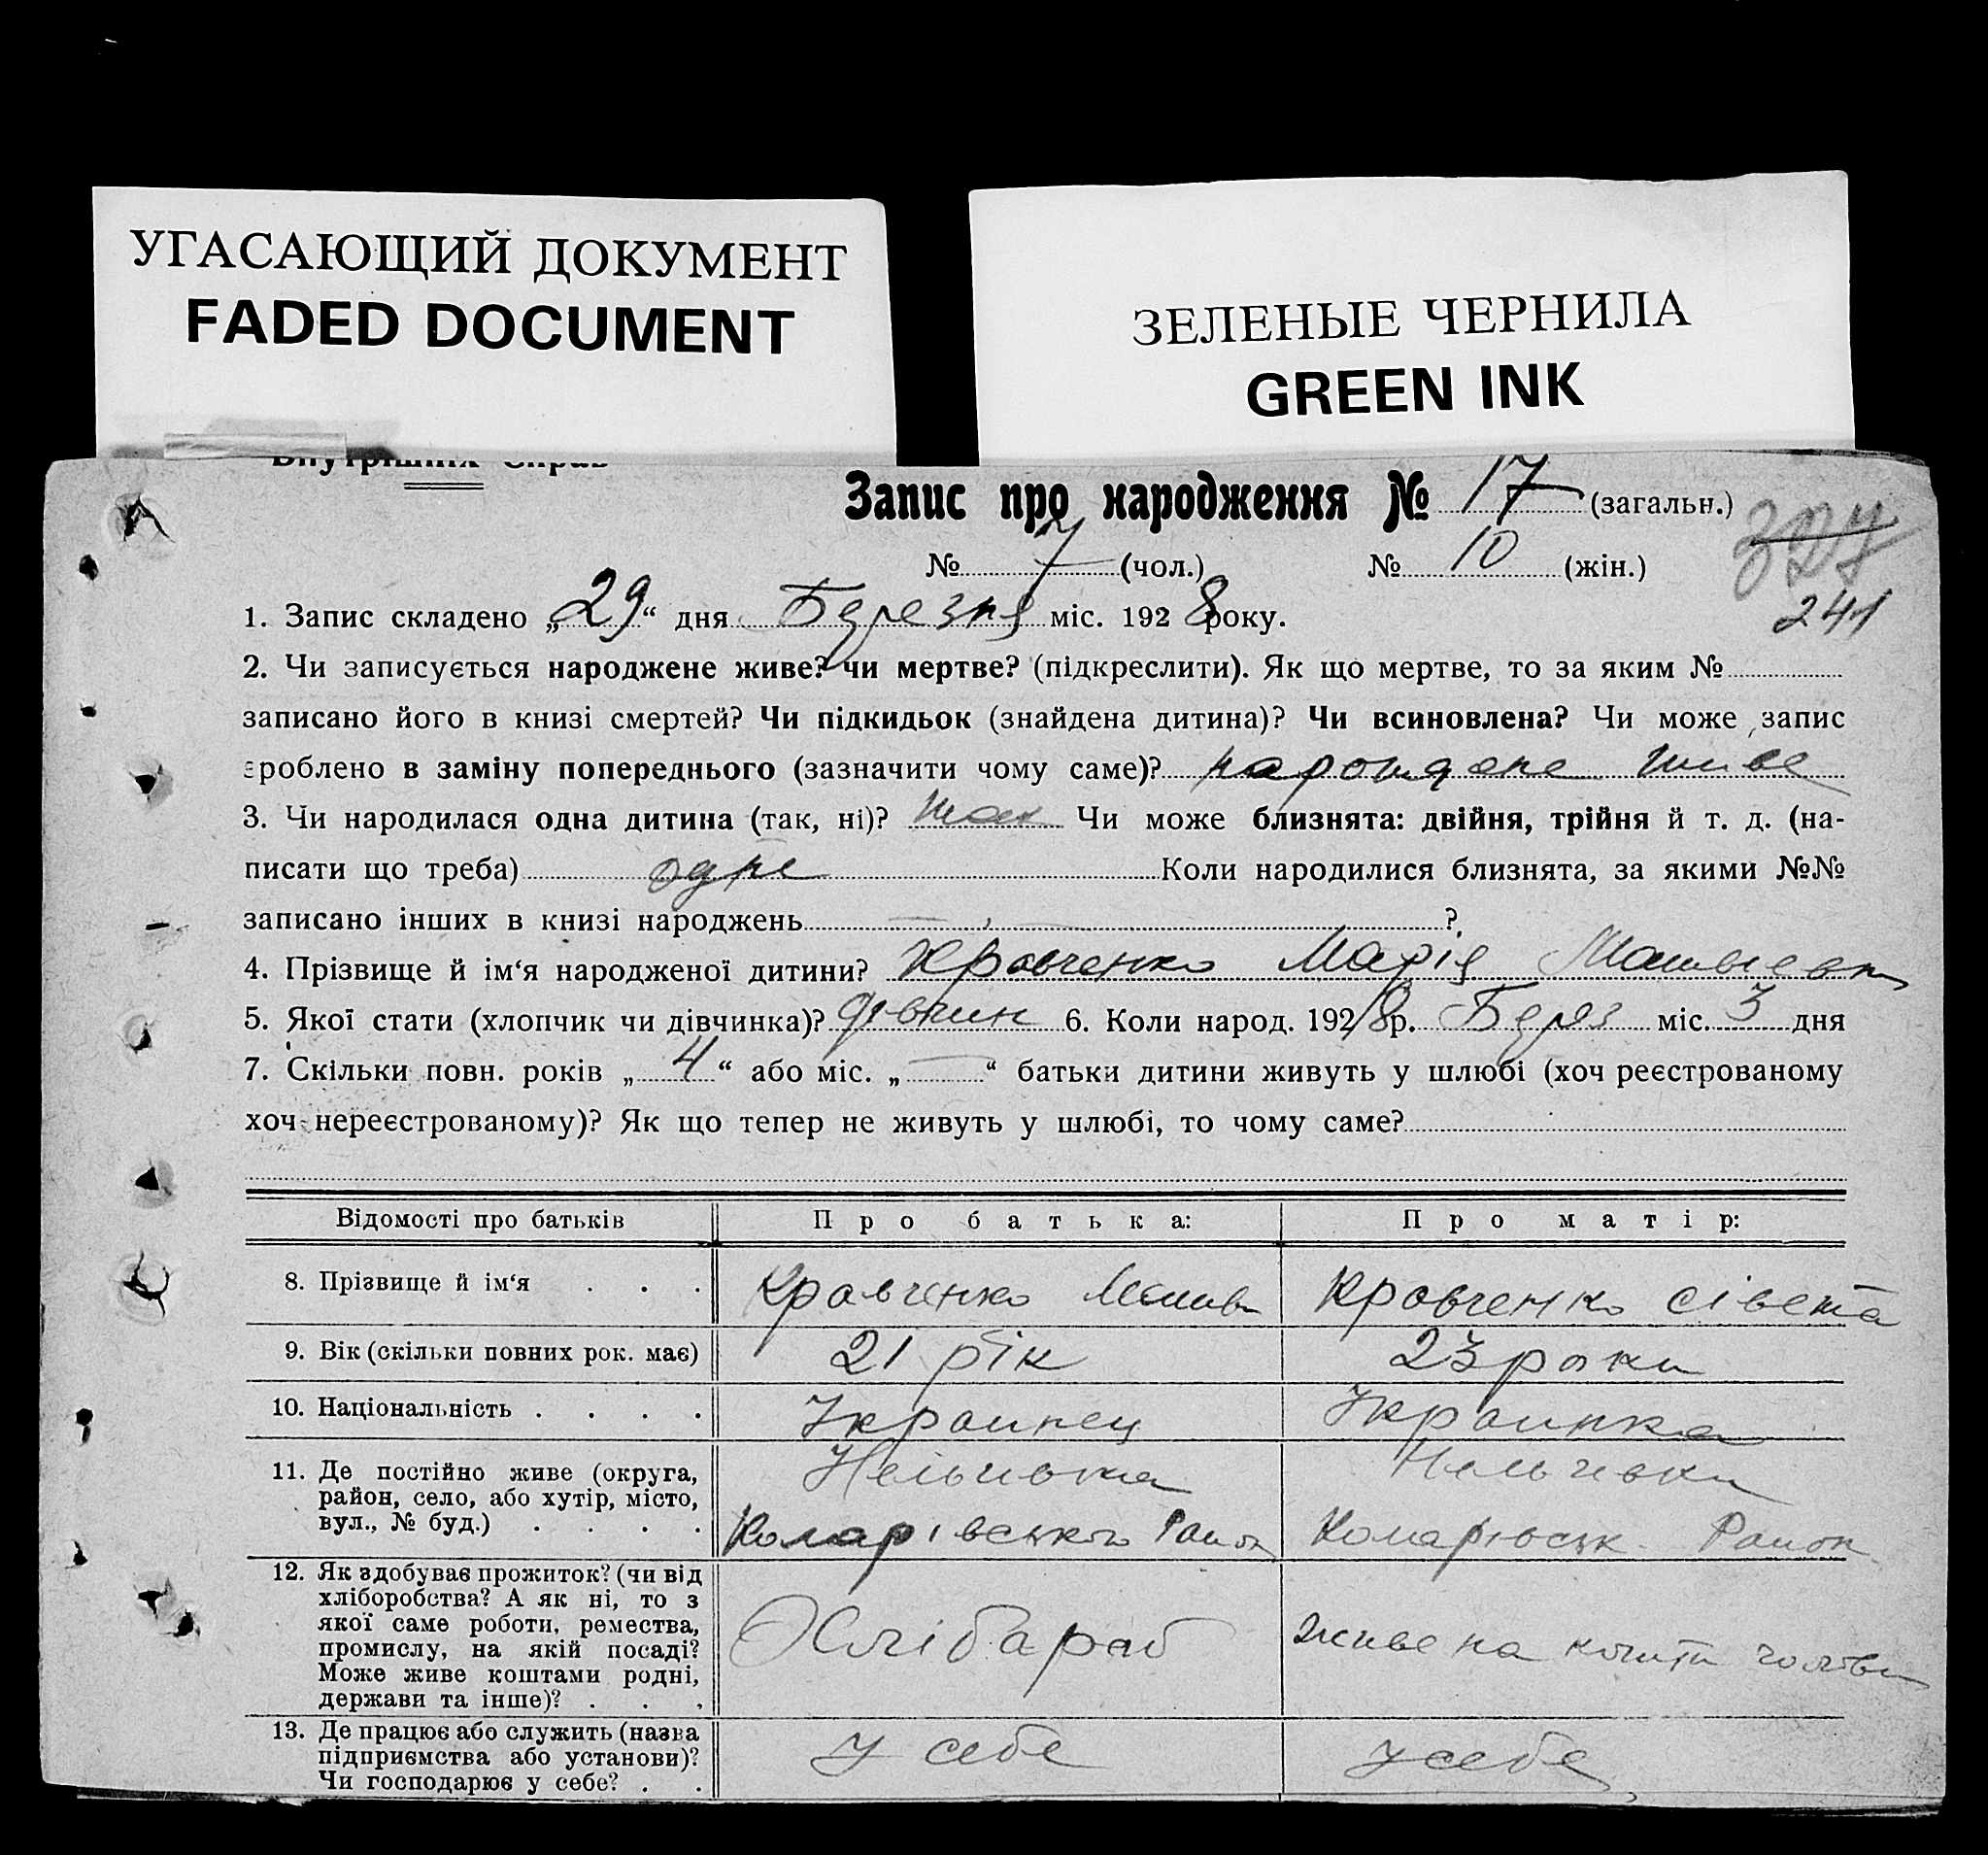 УГАСАЮЩИЙ ДОКУМЕНТ
FADED DOCUMENT
ЗЕЛЕНЫЕ ЧЕРНИЛА
GREEN INK
Внутрішніх Справ
Запис про народження № 17 (загальн.)
327
№ 7 (чол.) № 10 (жін.)
241
1. Запис складено „29“ дня Березня міс. 1928 року.
2. Чи записується народжене живе? чи мертве? (підкреслити). Як що мертве, то за яким №
записано його в книзі смертей? Чи підкидьок (знайдена дитина)? Чи всиновлена? Чи може запис
зроблено в заміну попереднього (зазначити чому саме)? народжене живе
3. Чи народилася одна дитина (так, ні)? так Чи може близнята: двійня, трійня й т. д. (на-
писати що треба) одне Коли народилися близнята, за якими №№
записано інших в книзі народжень — — ?
4. Прізвище й ім‘я народженої дитини? Кравченко Марія
5. Якої стати (хлопчик чи дівчинка)? дівчин 6. Коли народ. 1928 р. Берез міс. 3 дня
7. Скільки повн. років „4“ або міс. „—“ батьки дитини живуть у шлюбі (хоч реєстрованому
хоч нереєстрованому)? Як що тепер не живуть у шлюбі, то чому саме?
Відомості про батьків Про батька: Про матір:
8. Прізвище й ім‘я . . . Кравченко Кравченко
9. Вік (скільки повних рок. має) 21 рік 23 роки
10. Національність . . . . Украинец Украинка
11. Де постійно живе (округа,
район, село, або хутір, місто,
вул., № буд.) . . . .
Комарівського Раион Комарівськ. Раион
12. Як здобуває прожиток? (чи від
хліборобства? А як ні, то з
якої саме роботи, ремества,
промислу, на якій посаді?
Може живе коштами родні,
держави та інше)? . . .
Хлібараб живе на кошти
13. Де працює або служить (назва
підприємства або установи)?
Чи господарює у себе? . .
у себе у себе